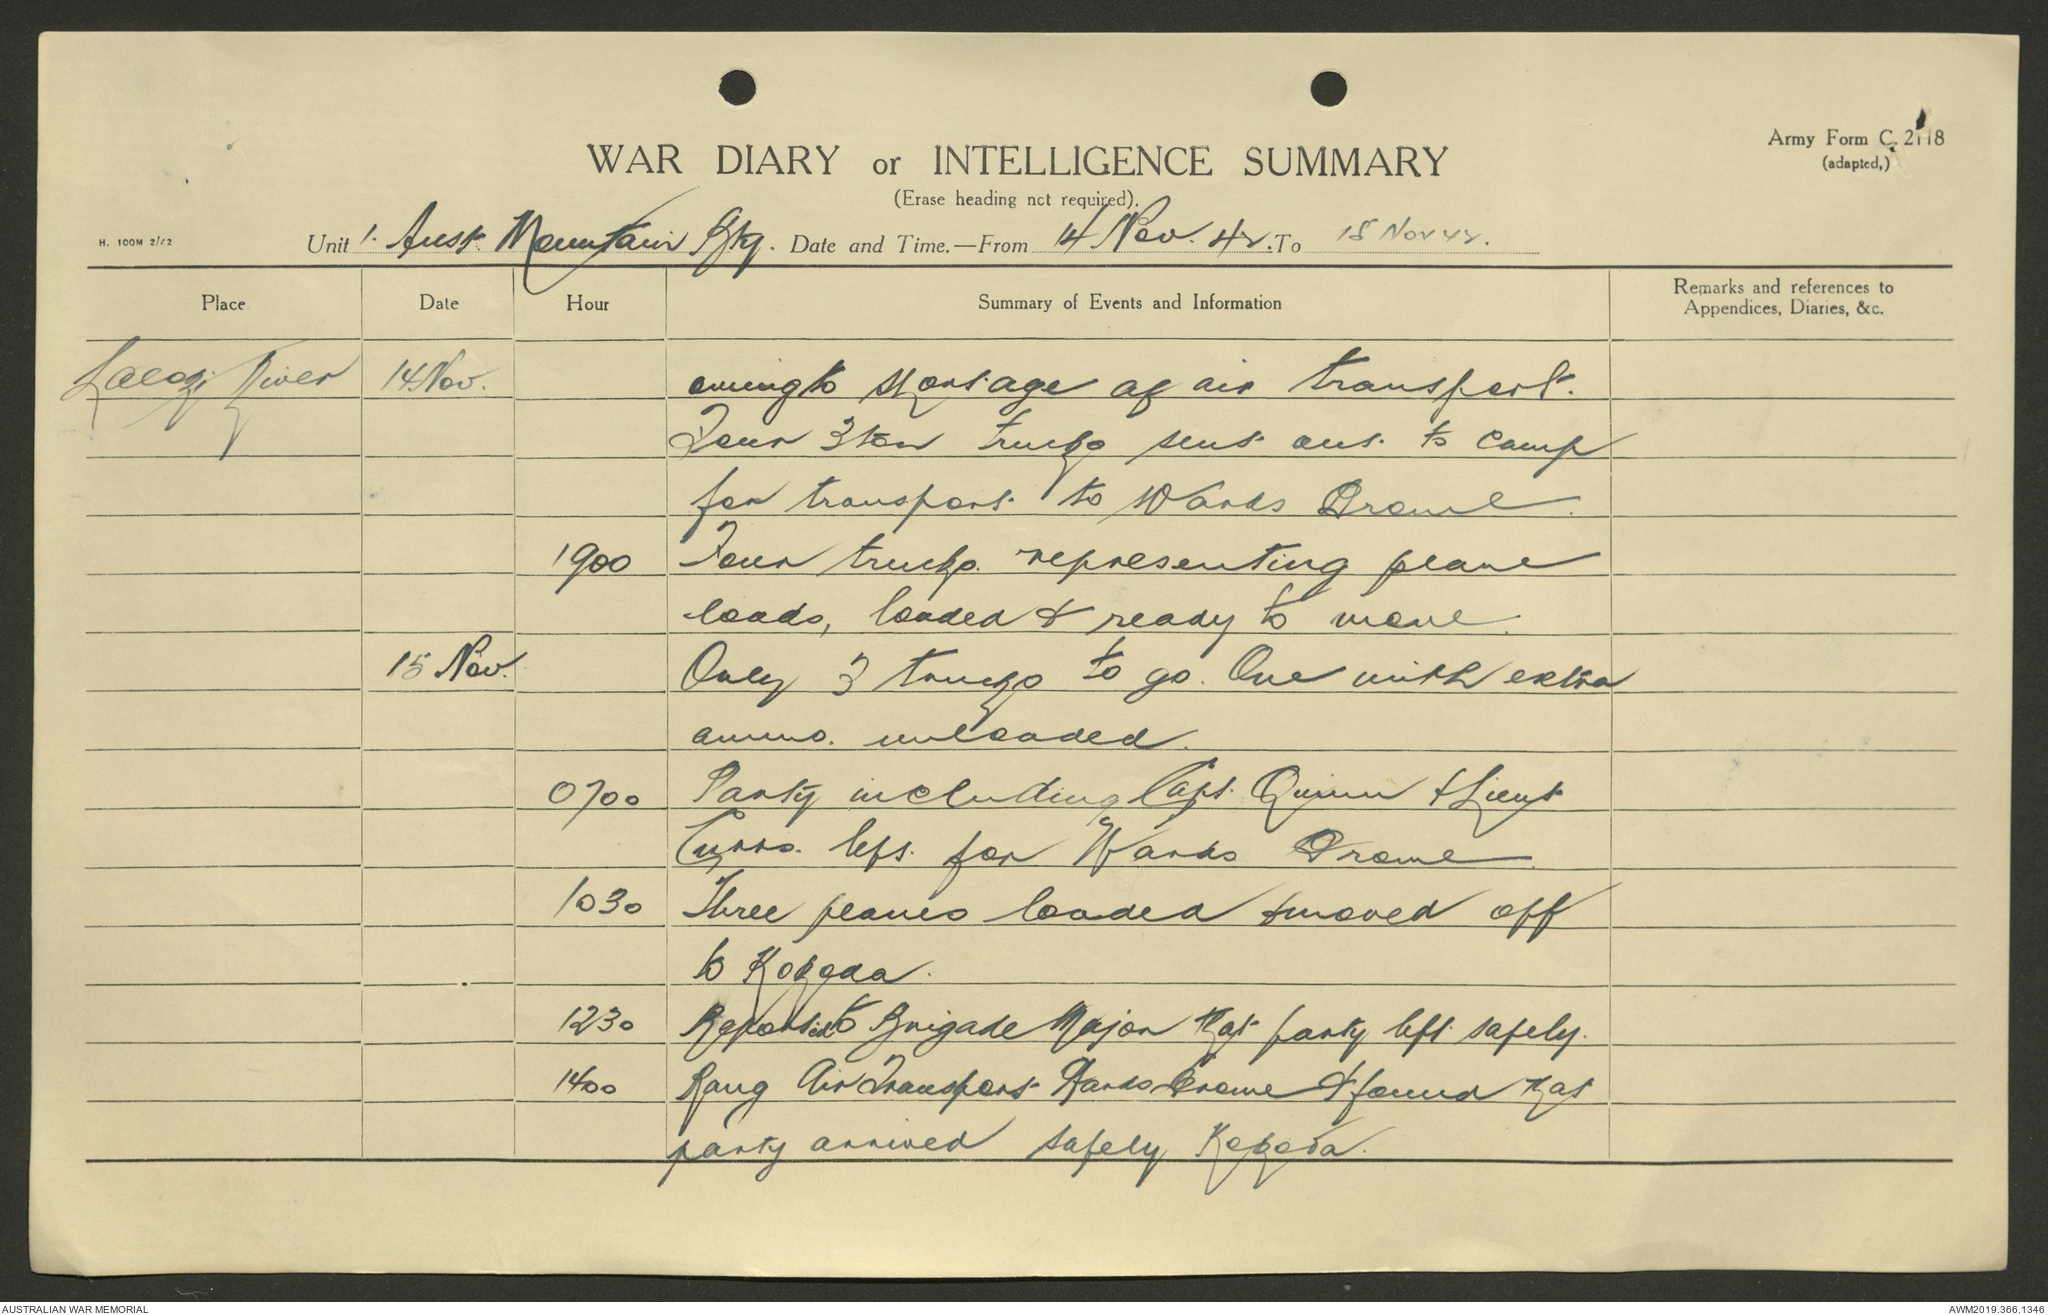 Army Form C. 2118
(adapted,)
WAR DIARY or INTELLIGENCE SUMMARY
(Erase heading not required).
H. 100M 2/42
Unit 1. Aust. Mountain Bty. Date and Time.—From 14 Nov. 42. To 15 Nov 42.
Place Date Hour Summary of Events and Information Remarks and references to
Appendices, Diaries, &c.
Laloki River 14 Nov. owing to shortage of air transport.
Four 3 ton trucks sent out to camp
for transport to Wards Drome.
1900 Four trucks representing plane
loads, loaded & ready to move.
15 Nov. Only 3 trucks to go. One with extra
ammo. unloaded.
0700 Party including Capt. Quinn & Lieut
left for Wards Drome.
1030 Three planes loaded & moved off
to Kokoda.
1230 Reported to Brigade Major that party left safely.
1400 Rang Air Transport Wards Drome & found that
party arrived safely Kokoda.
AUSTRALIAN WAR MEMORIAL
AWM2019.366.1346